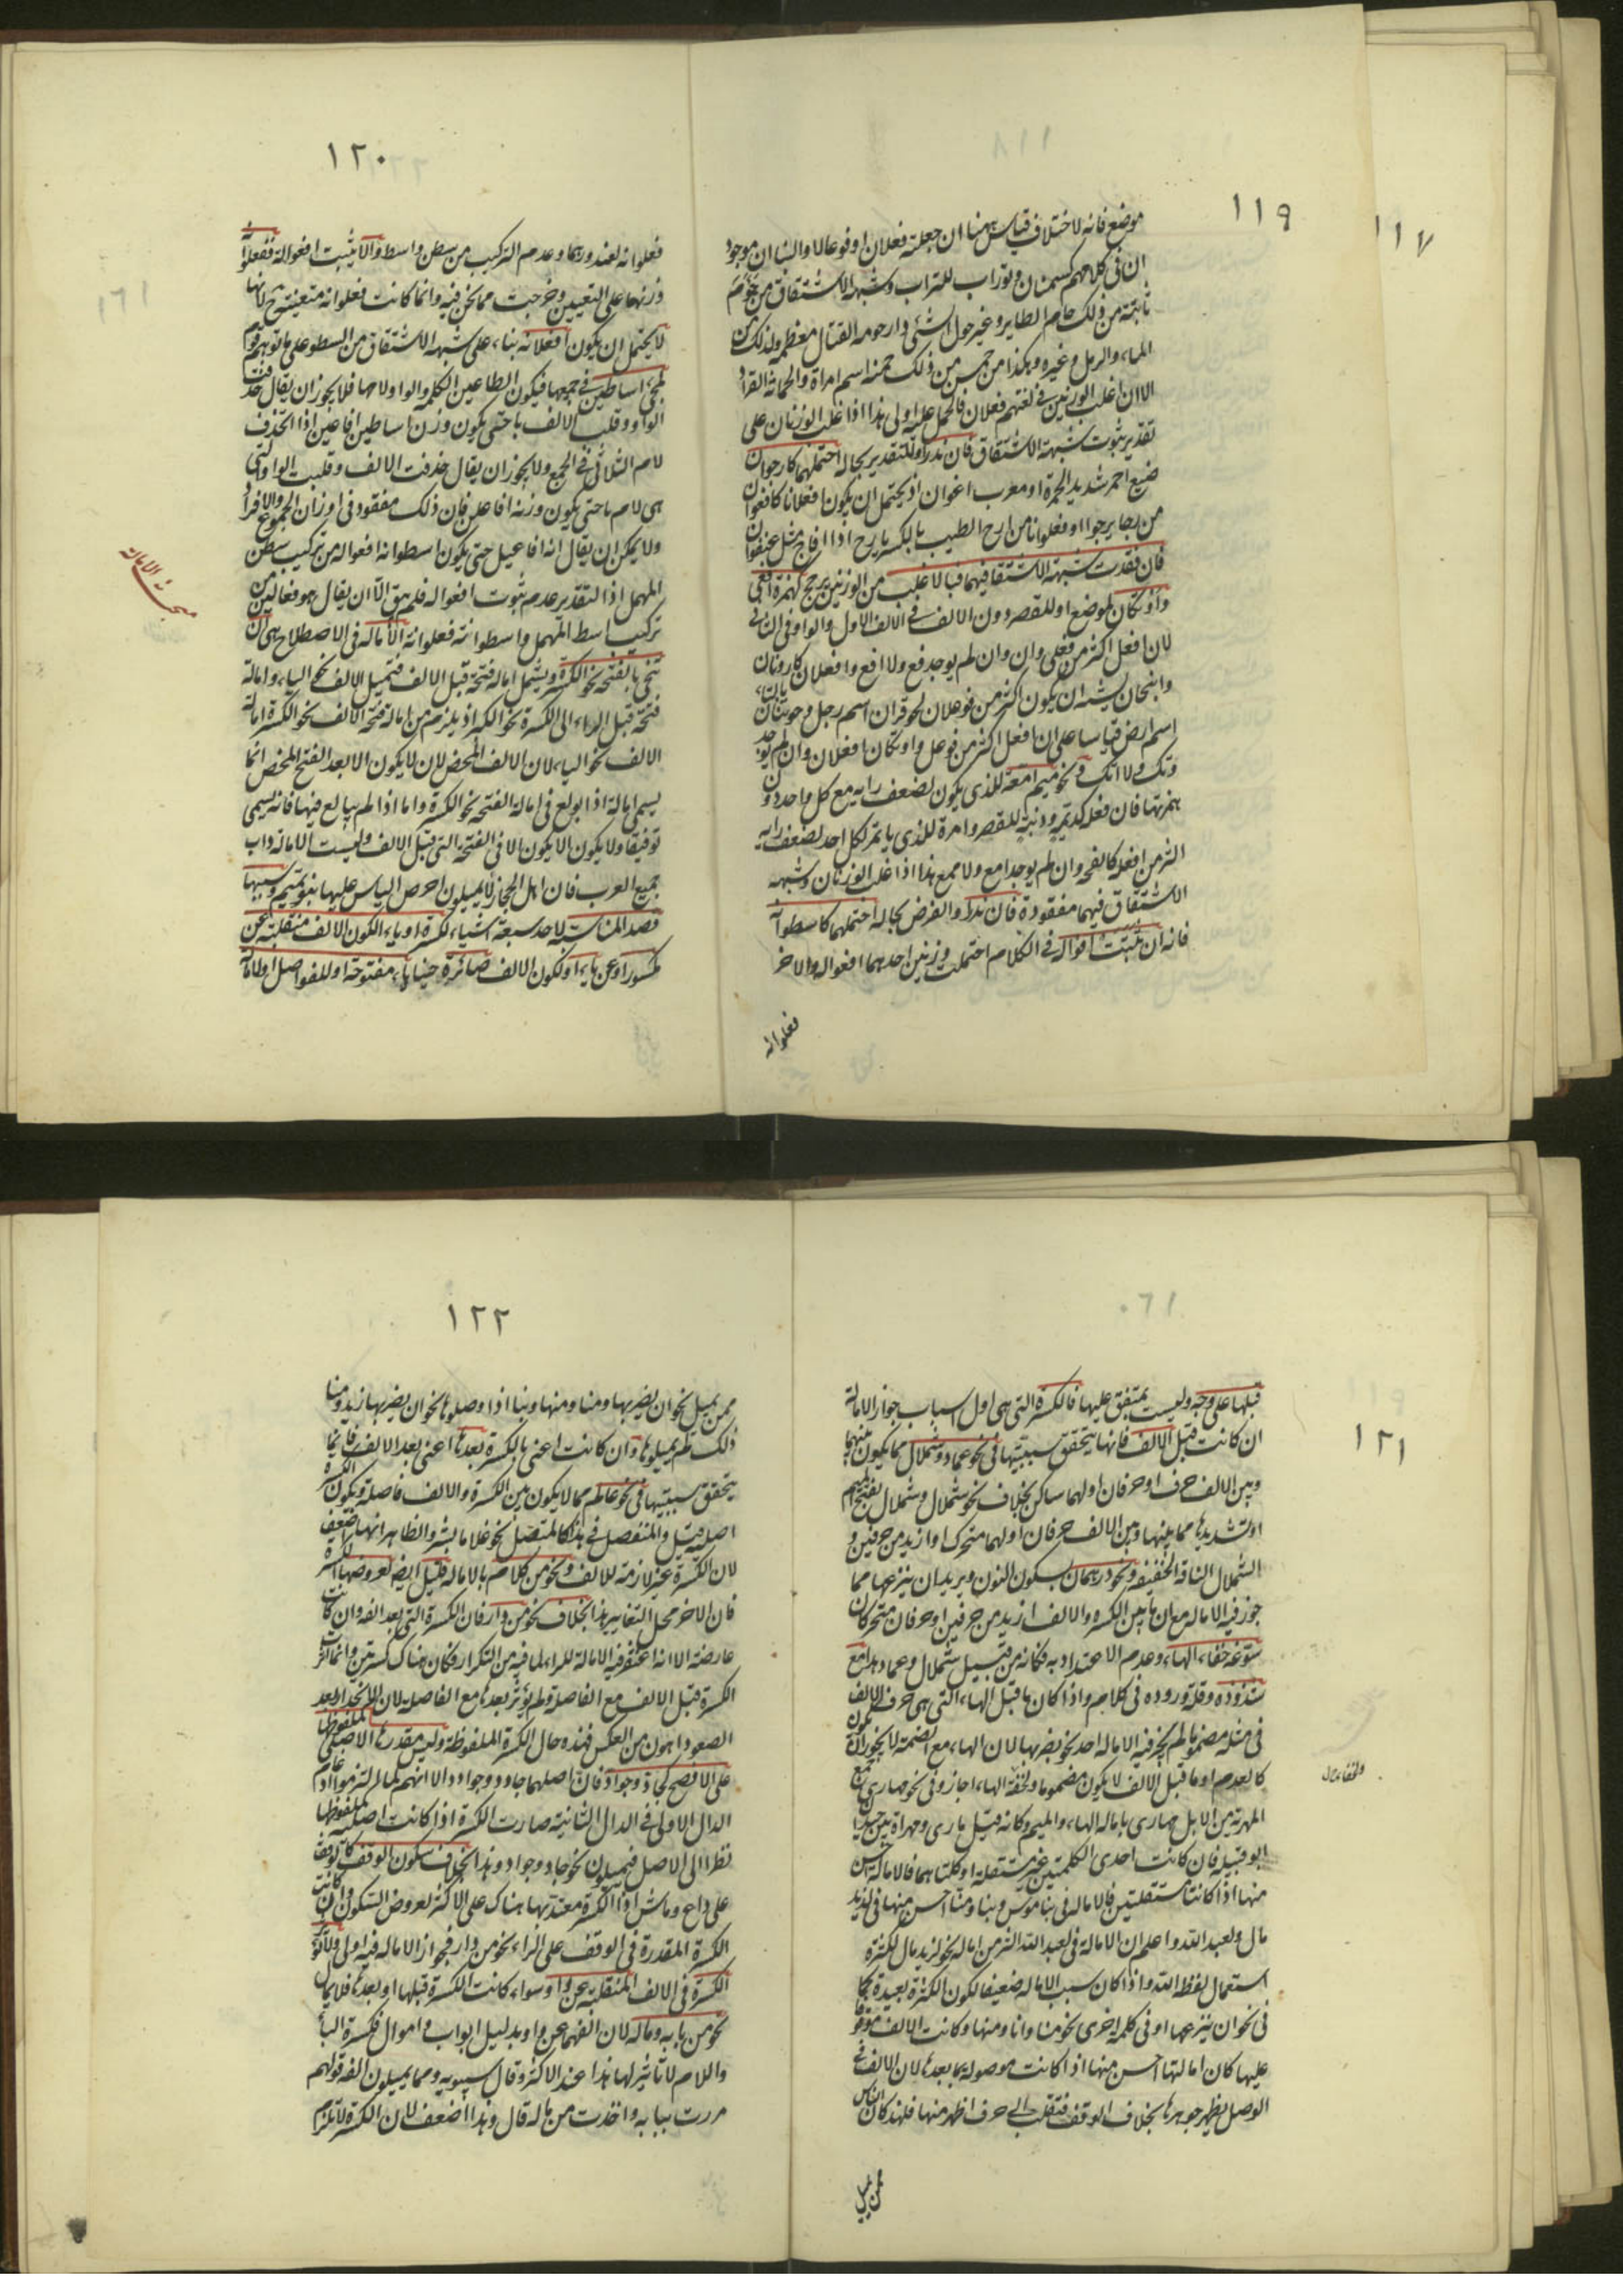 ١١٧
١١٩
موضع فانه لاختلاف قياس ههنا ان جعلته فعلان او فوعالا والبناان موجود
ان فى كلامهم كسمنان وتوراب للتراب وشبهة الاشتقاق من
ثابتة من ذلك حام الطاير وغيره حول الشئ دار حومة القتال معظمه وكذلك من
الماء والرمل وغيره وهكذا من حمن من ذلك حمنه اسم امراة والحمانة القراد
الا ان اغلب الوزنين فى لغتهم فعلان فالحمل عليه اولى هذا اذا غلب الوزنان على
تقدير ثبوت شبهة الاشتقاق فان ندرا والتقدير بحاله احتملهما كارجوان
صبغ احمر شديد الحمرة او معرب اغوان اذ يحتمل ان يكون افعلانا كافعوان
من رجا يرجوا او فعلوانا من ارج الطيب بالكسر يارج اذا فاح مثل عنفوان
فان فقدت شبهة الاشتقاق فيهما فبالاغلب من الوزنين يرجح كهمزة افعى
واوتكان لموضع او للقصر دون الالف فى الالف الاول والواو فى الثانى
لان افعل اكثر من فعلى وان وان لم يوجد فع ولا افع وافعلان كارونان
وانبجان يشبه ان يكون اكثر من فوعلان كحوقران اسم رجل وحوتنان
اسم ارض قياسا على ان افعل اكثر من فوعل واوتكان افعلان وان لم يوجد
وتك ولا اتك ونحو ميم امعة للذى يكون لضعف رايه مع كل واحد دون
همزتها فان فعلة كدنمة ودنبة للقصر وامرة للذى ياتمر لكل احد لضعف رايه
اكثر من افعلة كانفحة وان لم يوجد امع ولا ممع هذا اذا غلب الوزنان وشبهة
الاشتقاق فيهما مفقودة فان ندرا والفرض بحاله احتملهما كاسطوانة
فانه ان ثبتت افوالة فى الكلام احتملت وزنين احدهما افعواله والاخر
فعلوانه
١٢٠
فعلوانه لعندورهما وعدم التركيب من سطن واسط والا يثبت افعوالة ففعلوانة
وزنها على التعيين وخرجت مما نحن فيه وانما كانت فعلوانه متعينة ح لانها
لا يحتمل ان يكون افعلانه بناء على شبهة الاشتقاق من السطو على ما توهم قوم
لمجئ اساطين فى جمعها فيكون الطا عين الكلمه والواو لامها فلا يجوز ان يقال حذفت
الواو وقلب الالف يا حتى يكون وزن اساطين افاعين اذ لا تحذف
لام الثلاثى فى الجمع ولا يجوز ان يقال حذفت الالف وقلبت الواو التى
هى لام يا حتى يكون وزنه افاعلن فان ذلك مفقود فى اوزان الجموع والافراد
ولا يمكن ان يقال انه افاعيل حتى يكون اسطوانه افعواله من تركيب سطن
المهمل اذ التقدير عدم ثبوت افعواله فلم يبق الا ان يقال هو فعالين من
تركيب اسط المهمل واسطوانه فعلوانة الامالة فى الاصطلاح هى ان
تنحى بالفتحة نحو الكسرة ويشمل امالة فتحة قبل الالف فتميل الالف نحو الياء وامالة
فتحة قبل الهاء الى الكسرة نحو الكبر اذ يلزم من امالة فتحة الالف نحو الكسرة امالة
الالف نحو الياء لان الالف المحض لا يكون الا بعد الفتح المحض انما
يسمى امالة اذا بولغ فى امالة الفتحة نحو الكسرة واما اذا لم يبالغ فيها فانه يسمى
ترقيقا ولا يكون الا يكون الا فى الفتحة التى قبل الالف وليست الامالة داب
جميع العرب فان اهل الحجاز لا يميلون احرص الناس عليها بنو تميم وسببها
قصد المناسبة لاحد سبعة اشياء لكسرة او ياء او لكون الالف منقلبة عن
مكسور او عن ياء او لكون الالف صائرة حينا ياء مفتوحة او للفواصل او لامالة
مبحث الامالة
١٢١
قبلها على وجه وليست بمتفق عليها فالكسرة التى هى اول اسباب جواز الامالة
ان كانت قبل الالف فانها يتحقق سببيتها فى نحو عماد وشملال مما يكون بينها
وبين الالف حرف او حرفان اولهما ساكن بخلاف نحو شملال وشملال بفتح الميم
او تشديدها مما بينها وبين الالف حرفان اولهما متحرك او ازيد من حرفين و
الشملال الناقة الخفيفة ونحو درهمان بسكون النون ويريد ان ينزعها مما
جوز فيه الاماله مع ان ما بين الكسرة والالف ازيد من حرفين او حرفان متحركان
سوغه خفاء الهاء وعدم الاعتداد به فكانه من قبيل شملال وعماد هذا مع
شذوذه وقلة وروده فى كلامهم واذا كان ما قبل الهاء التى هى حرف الالف
فى مثله مضموما لم يجز فيه الاماله احد نحو يضربها لان الهاء مع الضمة لا يجوز ان يكون
كالعدم او ما قبل الالف لا يكون مضموما ولخفة الهاء اجازوا فى نحو صهارى جمع
المهرية من الابل مهارى بامالة الهاء والميم وكانه قيل مارى ومهراة بن حيدان
ابو قبيلة فان كانت احدى الكلمتين غير مستقلة او كلتاهما فالامالة احسن
منها اذا كانتا مستقلتين فالامالة فى بنا موس وبنا ومنا احسن منها فى لزيد
مال ولعبد الله واعلم ان الامالة فى لعبد الله اكثر من امالة نحو لزيد مال لكثرة
استعمال لفظ الله واذا كان سبب الامالة ضعيفا لكون الكثرة بعيدة كما
فى نحو ان ينزعها او فى كلمة اخرى نحو منا وانا ومنها وكانت الالف موقوفا
عليها كان امالتها احسن منها اذا كانت موصولة بما بعدها لان الالف فى
الوصل يظهر جوهرها بخلاف الوقف فتقلب الى حرف اظهر منها فلهذا كان الناس
ممن يميل
١٢٢
ممن يميل نحو ان يضربها ومنا ومنها وبنا اذا وصلوها نحو ان يضربها زيد ومنا
ذلك لم يميلوها وان كانت اعنى الكسرة بعدها اعنى بعد الالف فانما
يتحقق سببيتها فى نحو عالم مما لا يكون بين الكسرة والالف فاصلة ويكون الكسرة
اصلية قيل والمنفصل فى هذا كالمتصل نحو غلاما بشر والظاهر انها اضعف
لان الكسرة غير لازمة للالف ونحو من كلام بالاماله قليل ايضا لعروضها الكسرة
فان الاخر محل التغايير هذا بخلاف نحو من دار فان الكسرة التى بعد الفه وان كانت
عارضة الا انه اغتفر فيه الامالة للراء لما فيه من التكرار فكان هناك كسرتين وانما اثرت
الكسرة قبل الالف مع الفاصلة ولم يؤثر بعدها مع الفاصله لان الانحدار بعد
الصعود اهون من العكس فهذه حال الكسرة الملفوظة وليس مقدرها الاصلى كملفوظها
على الافصح كجاد وجواد فان اصلهما جادد وجوادد الا انهم لما التزموا ادغام
الدال الاولى فى الدال الثانية صارت الكسرة اذا كانت اصلية كملفوظها
نظرا الى الاصل فيميلون نحو جاد وجواد وهذا بخلاف سكون الوقف كالوقف
على داع وماش اذ الكسرة معتد بها هناك على الاكثر لعروض السكون وان كانت
الكسرة المقدرة فى الوقف على الراء نحو من دار فجواز الامالة فيه اولى ولا تؤثر
الكسرة فى الالف المنقلبة عن واو سواء كانت الكسرة قبلها او بعدها فلا يمال
نحو من بابه وماله لان الفهما عن واو بدليل ابواب و اموال فكسرة البا
واللام لا تاثير لها هذا عند الاكثر وقال سيبويه ومما يميلون الفه قولهم
مررت ببابه واخذت من ماله قال وهذا اضعف لان الكسرة لا تلزم